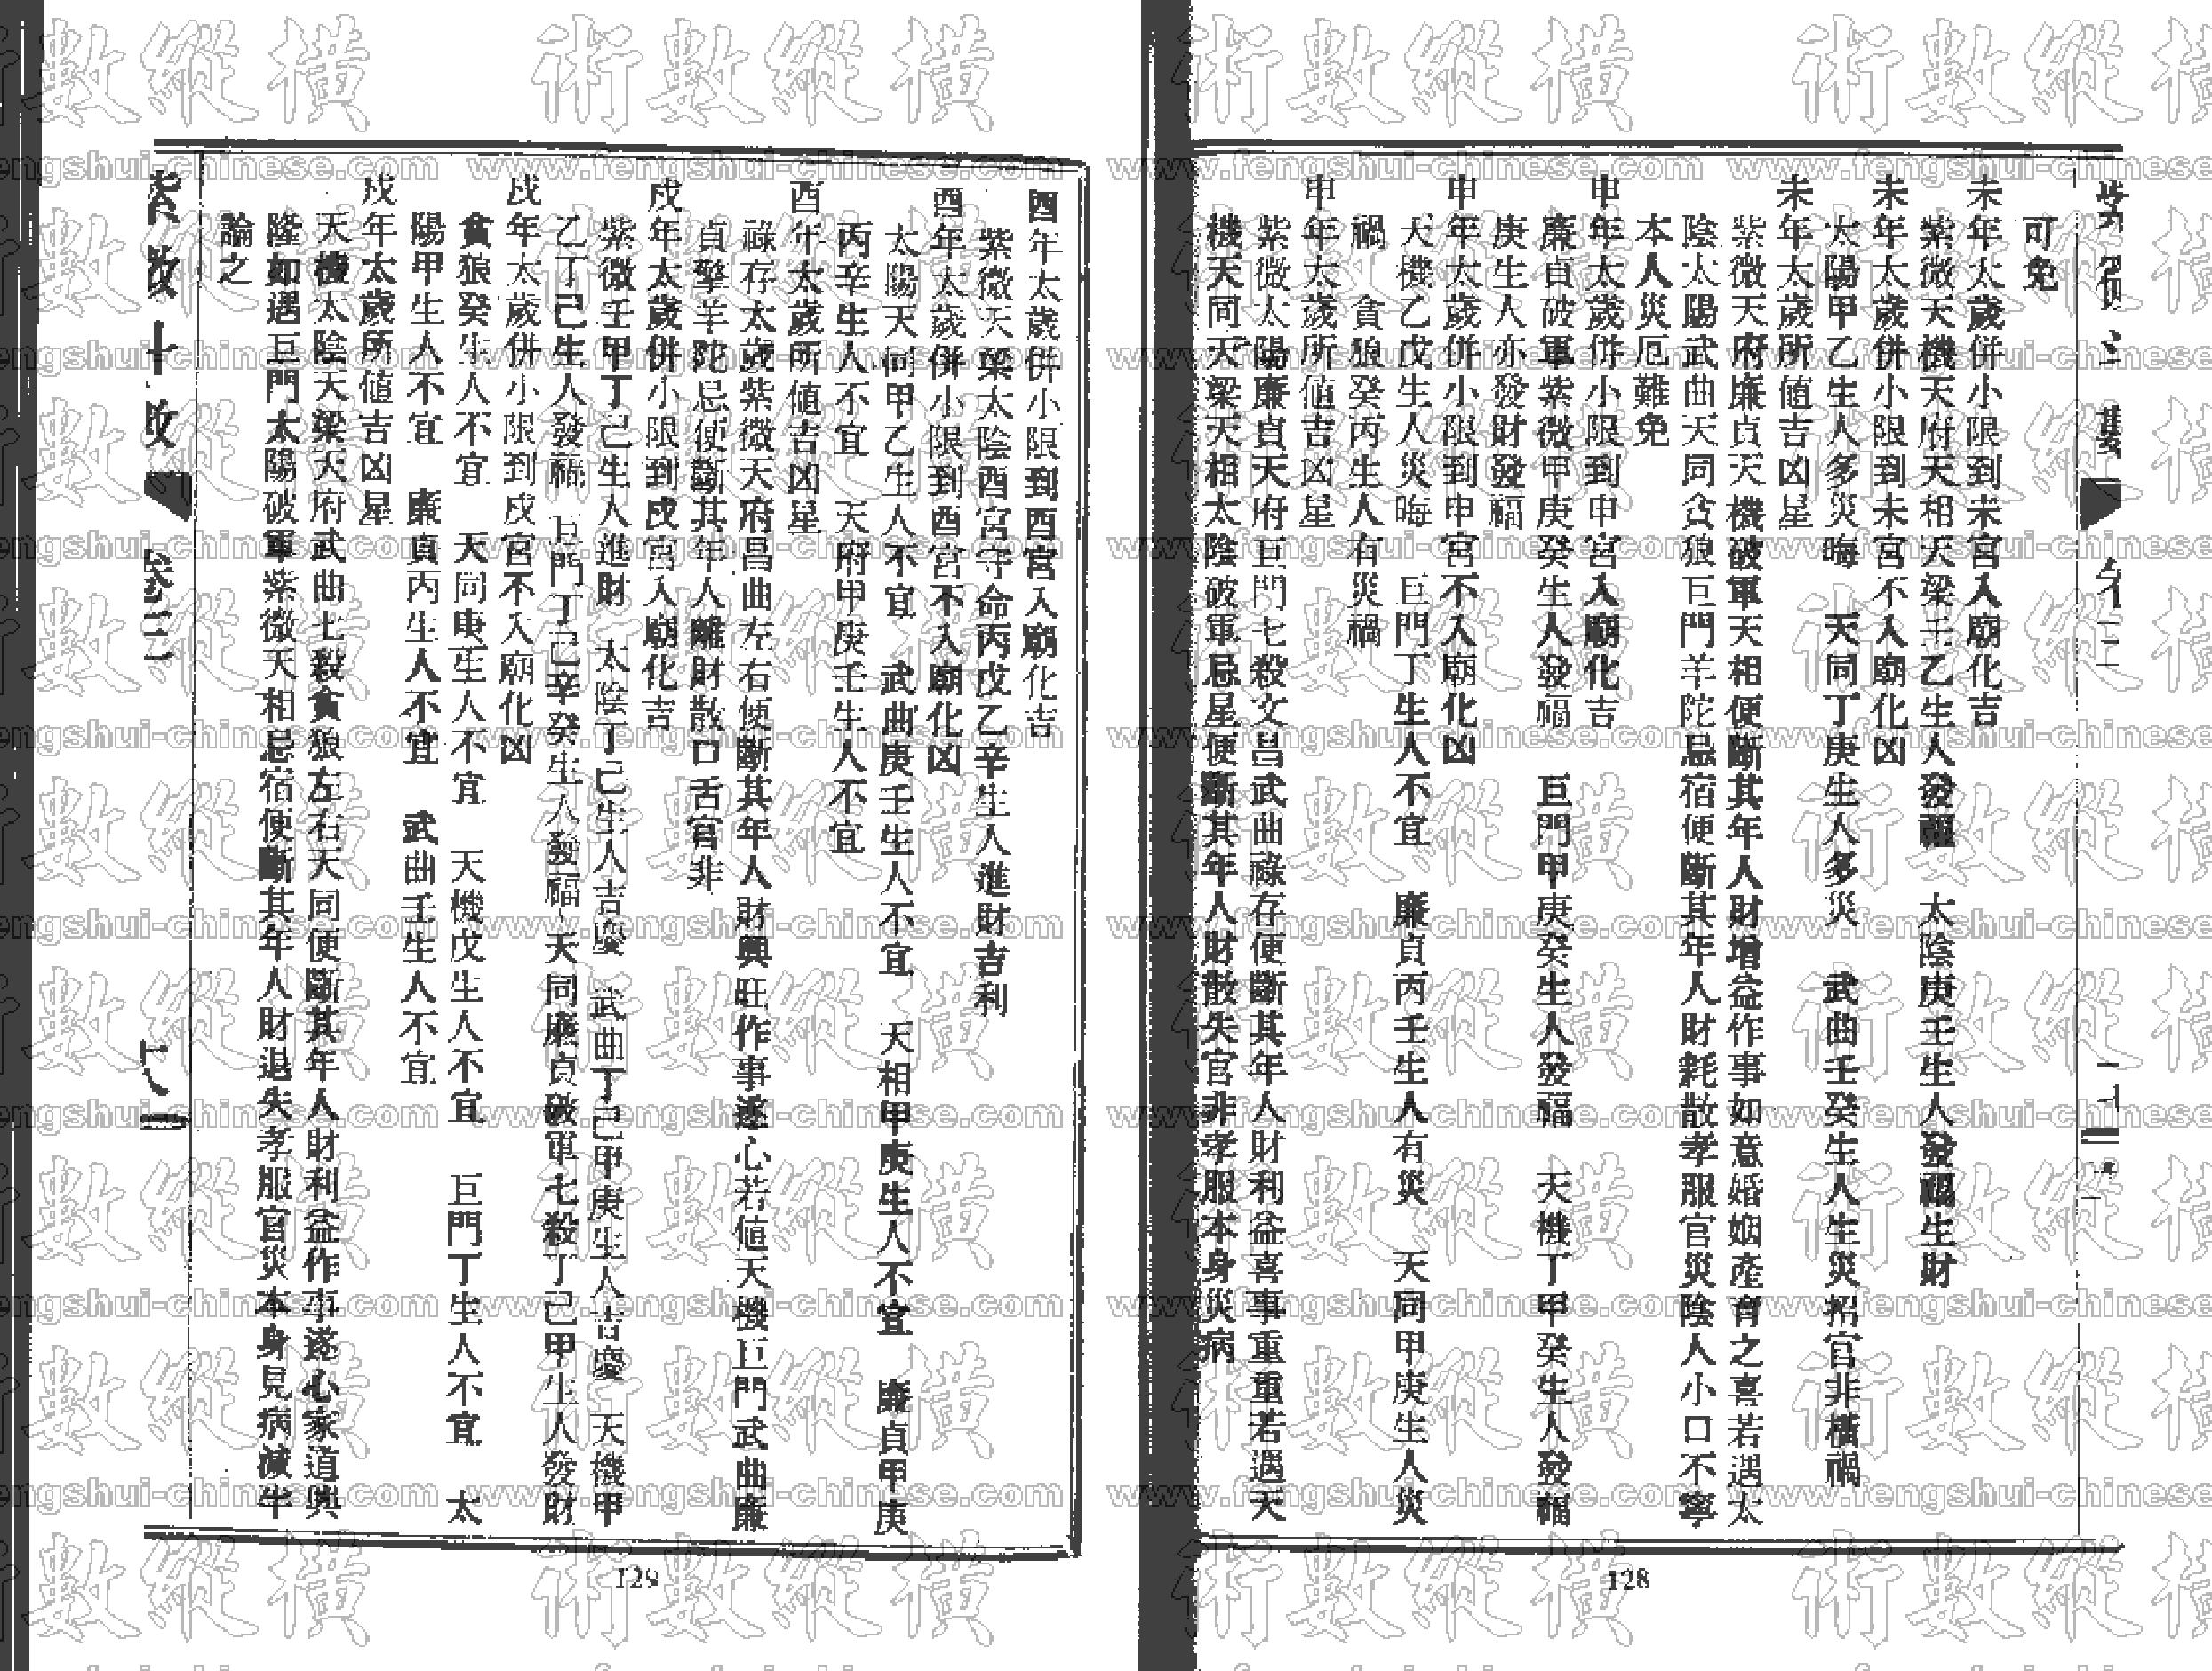 可免
未年太歲併小限到未宮入廟化吉
紫微天機天府天相天梁壬乙生人發福　太陰庚壬生人發福生財
未年太歲併小限到未宮不入廟化凶
太陽甲乙生人多災晦　天同丁庚生人多災　武曲壬癸生人生災招官非橫禍
未年太歲所值吉凶星
紫微天府廉貞天機破軍天相便斷其年人財增益作事如意婚姻產育之喜若遇太
陰太陽武曲天同貪狼巨門羊陀忌宿便斷其年人財耗散孝服官災陰人小口不寧
本人災厄難免
申年太歲併小限到申宮入廟化吉
廉貞破軍紫微甲庚癸生人發福　巨門甲庚癸生人發福　天機丁甲癸生人發福
庚生人亦發財發福
申年太歲併小限到申宮不入廟化凶
天機乙戊生人災晦　巨門丁生人不宜　廉貞丙壬生人有災　天同甲庚生人災
禍　貪狼癸丙生人有災禍
申年太歲所值吉凶星
紫微太陽廉貞天府巨門七殺文昌武曲祿存便斷其年人財利益喜事重重若遇天
機天同天梁天相太陰破軍忌星便斷其年人財散失官非孝服本身災病
128
酉年太歲併小限到酉宮入廟化吉
紫微天梁太陰酉宮守命丙戊乙辛生人進財吉利
酉年太歲併小限到酉宮不入廟化凶
太陽天同甲乙生人不宜　武曲庚壬生人不宜　天相甲庚生人不宜　廉貞甲庚
丙辛生人不宜　天府甲庚壬生人不宜
酉年太歲所值吉凶星
祿存太歲紫微天府昌曲左右便斷其年人財興旺作事遂心若值天機巨門武曲廉
貞擎羊陀忌便斷其年人離財散口舌官非
戌年太歲併小限到戌宮入廟化吉
紫微壬甲丁己生人進財　太陰丁己生人吉慶　武曲丁己甲庚生人吉慶　天機甲
乙丁己生人發福　巨門丁己辛癸生人發福　天同廉貞破軍七殺丁己甲生人發財
戌年太歲併小限到戌宮不入廟化凶
貪狼癸生人不宜　天同庚生人不宜　天機戊生人不宜　巨門丁生人不宜　太
陽甲生人不宜　廉貞丙生人不宜　武曲壬生人不宜
戌年太歲所值吉凶星
天機太陰天梁天府武曲七殺貪狼左右天同便斷其年人財利益作事遂心家道興
隆如遇巨門太陽破軍紫微天相忌宿便斷其年人財退失孝服官災本身見病減半
論之
129
術數縱橫
www.fengshui-chinese.com